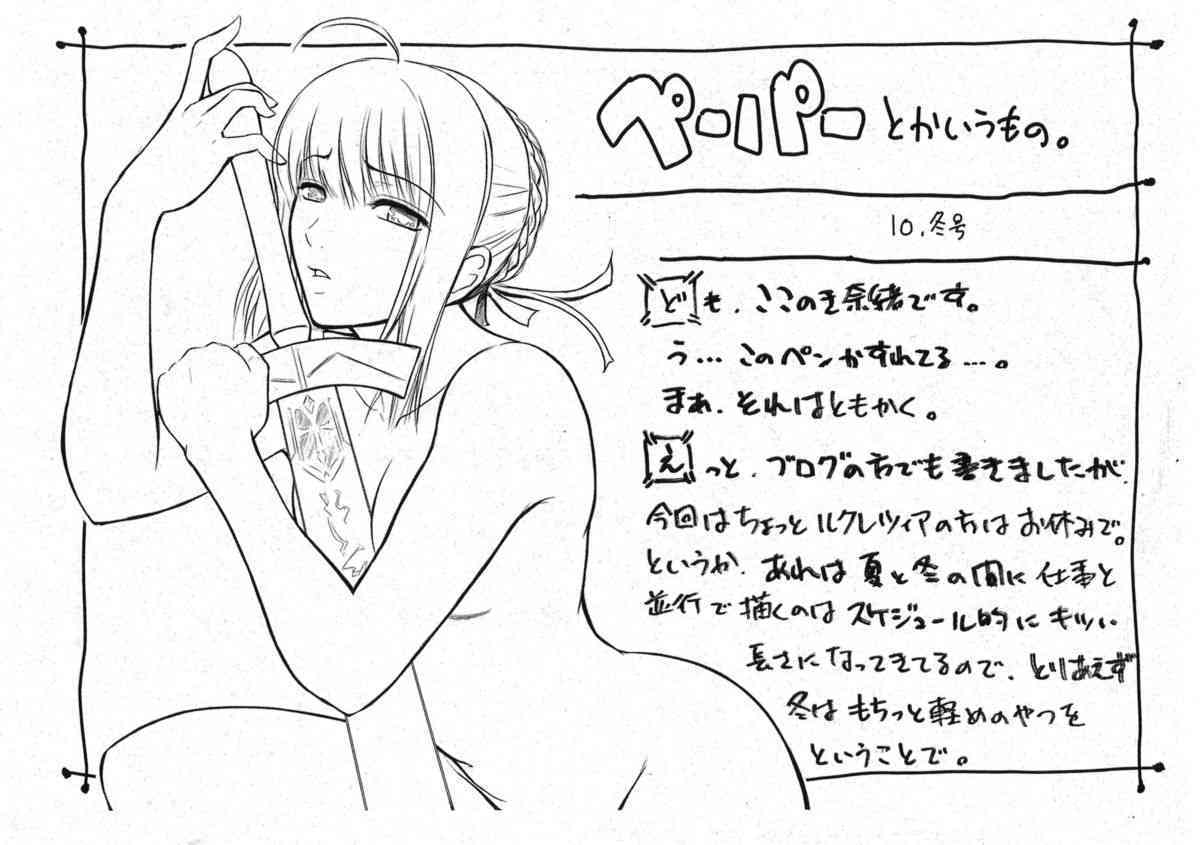 ペーパーとかいうもの。
10.冬号
ども、ここのき奈緒です。
う…このペンかすれてる…。
まあ、それはともかく。
えっと、ブログの方でも書きましたが、
今回はちょっとルクレツィアの方はお休みで。
というか、あれは夏と冬の間に仕事と
並行で描くのはスケジュール的にキツい
長さになってきてるので、とりあえず
冬はもちっと軽めのやつを
ということで。